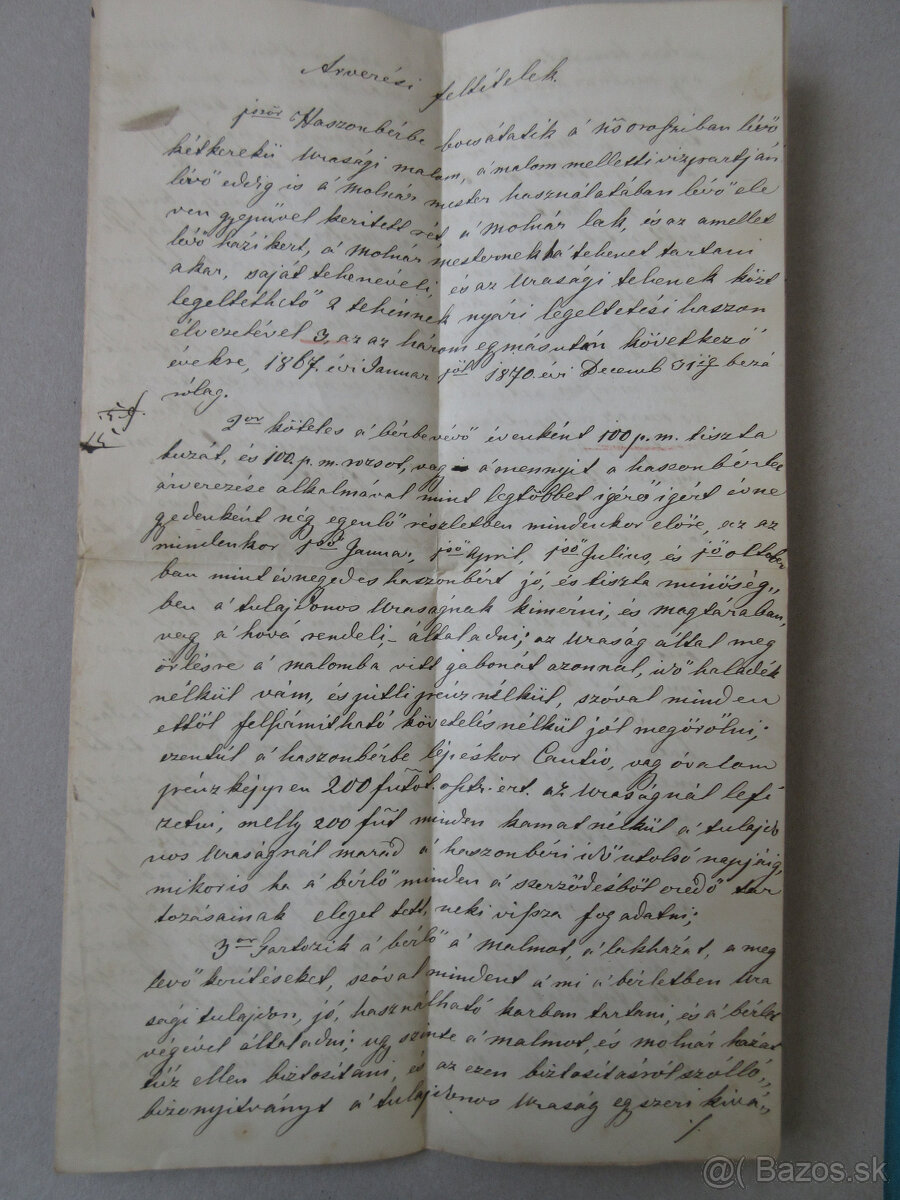 Arverési feltételek.
1ször Haszonbérbe bocsátatik á orosziban lévö
kétkerekü Urasági malom, á malom melletti vizpartján
lévö eddig is á molnár mester használatában lévö ele
ven gyepüvel keritett rét, á molnár lak, és az amellet
lévö házikert, á molnár mesternek há tehenet tartani
akar, saját tehenével, és az Urasági tehenek közt
legeltethetö 2 tehénnek nyári legeltetési haszon
élvezetével 3, az az három egymásután következö
évekre, 1867. évi Januar 1söt. 1870. évi Decemb 31ig bezá
rólag.
2or köteles á bérbevévö évenként 100 p. m. tiszta
buzát, és 100. p. m. rozsot, vagy ámennyit a haszonbérbe
árverezése alkalmával mint legtöbbet igérö igért évne
gyedenként négy egyenlö részletben mindenkor elöre, az az
mindenkor 1sö Januar, 1sö April, 1sö Julius, és 1sö Octob
ban mint évnegyedes haszonbért jó, és tiszta minöség„
ben á tulajdonos Uraságnak kimérni, és magtárában,
vagy á hová rendeli, általadni; az Uraság által meg
örlésre á malomba vitt gabonát azonnal, idö haladék
nélkül vám, és pitli pénz nélkül, szóval minden
ettöl felszámitható követelés nélkül jól megörölni;
ezentúl á haszonbérbe lépéskor Cautio, vagy óvadom
pénz képpen 200 futot. osztr. ert. az Uraságnál lefi
zetni, melly 200 fut minden kamat nélkül á tulajdo
nos Uraságnál marad á haszonbéri idö utolsó napjáig,
mikoris ha á bérlö minden á szerzödésböl eredö tar
tozásainak eleget tett, neki vissza fog adatni;
3or Tartozik á bérlö á malmot, á lakházat, a meg
levö keritéseket, szóval mindent á mi á bérletben Ura
sági tulajdon, jó, használható karban tartani, és á bérlet
végével általadni; ugy szinte á malmot, és molnár házat
tüz ellen biztositani, és az ezen biztositásról szólló„
bizonyitványt á tulajdonos Uraság egyszeri kivá„
./.
@( Bazos.sk